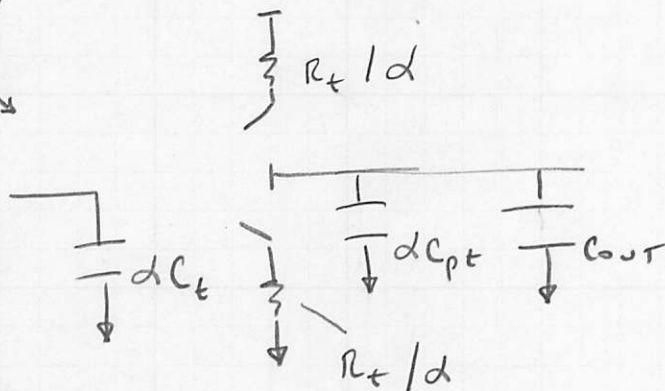 R_t / α
αC_t
αC_pt
C_OUT
R_t / α